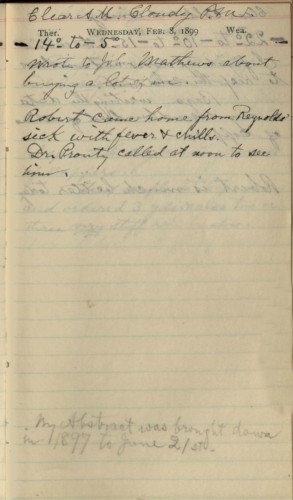 Clear A.M. Cloudy P.M.
Ther. WEDNESDAY, FEB. 8, 1899 Wea.
-14° to -5°
Wrote to Mathews about
buying a lot of me.
Robert came home from Reynolds
sick with fever & chills.
Dr. Pronty called at noon to see
him.
My Abstract was brought down
in 1897 to June 21st.